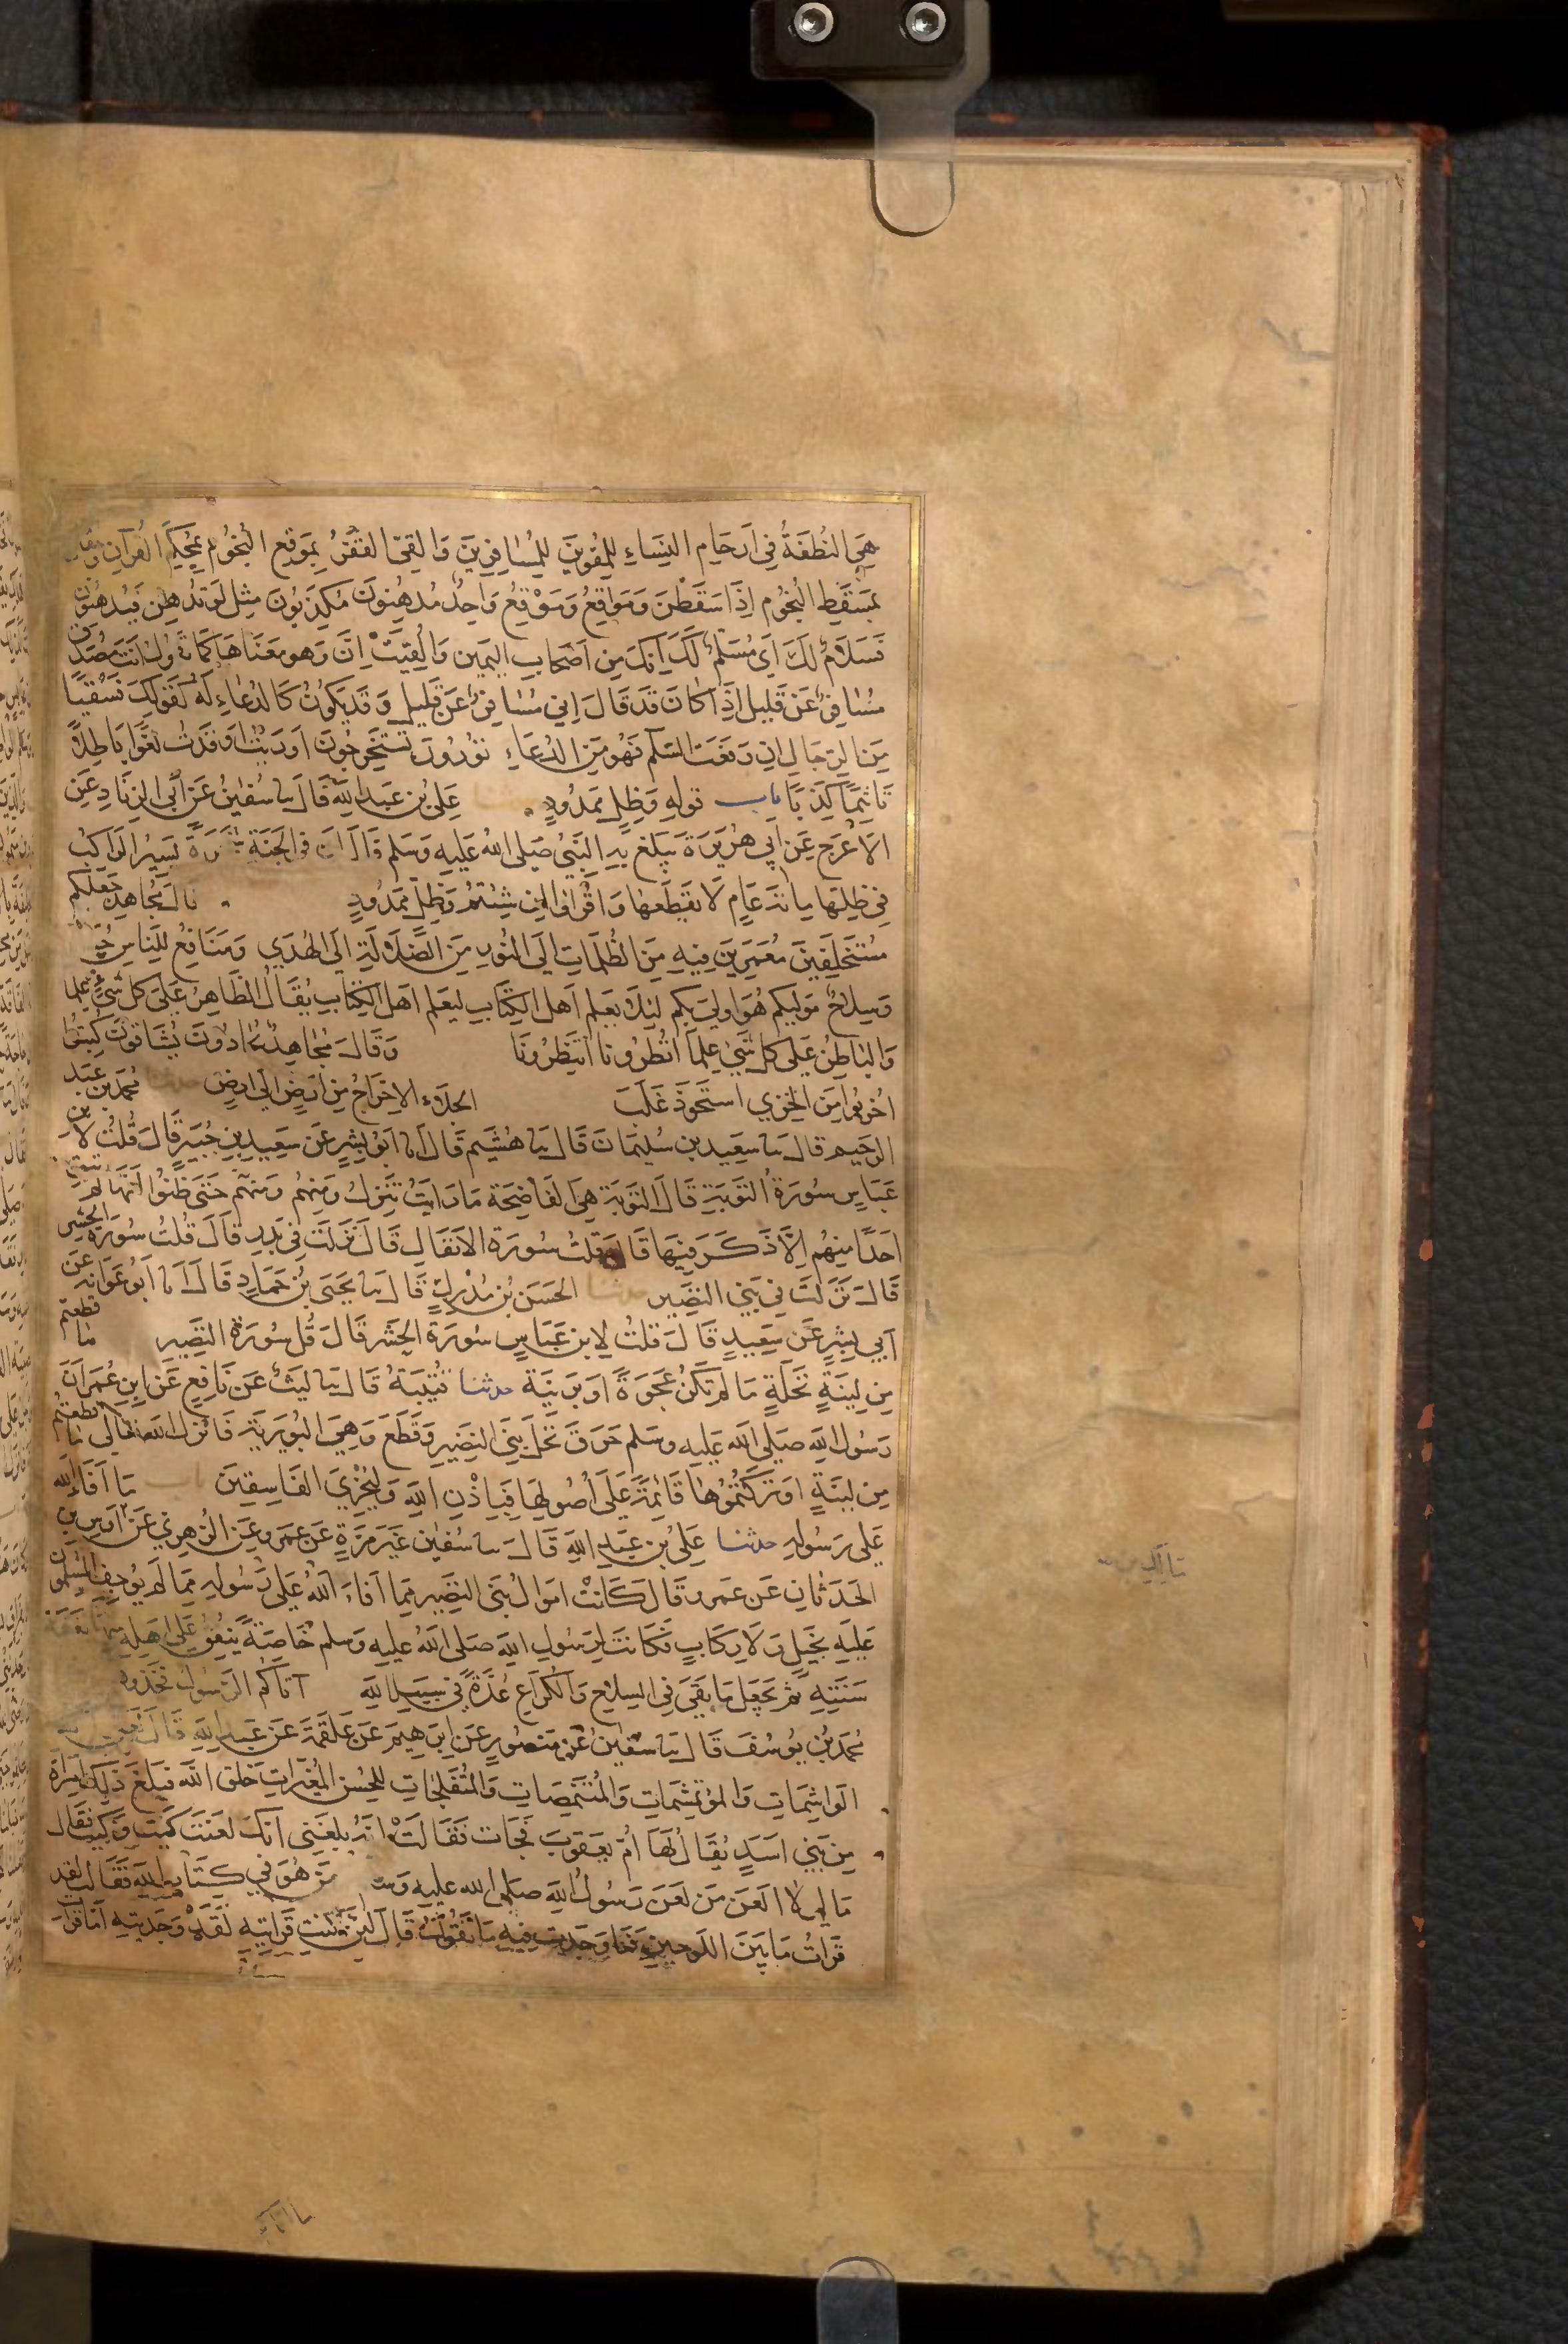 هي النطفة في ارحام النساء للمقوين للمسافرين والقي القفر بموقع النجوم بمحكم القرآن ويقال
بمسقط النجوم اذا سقطن ومواقع وموقع واحد مدهنون مكذبون مثل لو تدهن فيدهنون
فسلام لك اى مسلم لك انك من اصحاب اليمين والغيت ان وهو معناها كما تقول انت مصدق
مسافر عن قليل اذا كان قد قال اني مسافر عن قليل وقد يكون كالدعاء له كقولك فسقيا
من الرجال ان رفعت السلم فهو من الدعاء تورون تستخرجون اوريت اوقدت لغوا باطلا
تاثيما كذبا باب قوله وظل ممدود علي بن عبد الله قال ثنا سفين عن أبي الزناد عن
الاعرج عن ابي هريرة يبلغ به النبي صلى الله عليه وسلم قال ان في الجنة شجرة يسير الراكب
في ظلها مائة عام لا يقطعها واقراوا ان شئتم وظل ممدود قال مجاهد جعلكم
مستخلفين معمرين فيه من الظلمات الى النور من الضلالة الى الهدي ومنافع للناس جنة
وسلاح موليكم هو اولي بكم ليلا يعلم اهل الكتاب ليعلم اهل الكتاب يقال الظاهر على كل شيء علما
والباطن على كل شيء علما انظرونا انتظرونا وقال مجاهد يحادون يشاقون كبتوا
اخزيوا من الخزي استحوذ غلب الجلاء الاخراج من ارض الى ارض حدثنا محمد بن عبد
الرحيم قال ثنا سعيد بن سليمان قال ثنا هشيم قال انا ابو بشر عن سعيد بن جبير قال قلت لابن
عباس سورة التوبة قال التوبة هي الفاضحة ما زالت تنزل ومنهم ومنهم حتى ظنوا انها لم تبق
احدا منهم الا ذكر فيها قال قلت سورة الانفال قال نزلت في بدر قال قلت سورة الحشر
قال نزلت في بني النضير حدثنا الحسن بن مدرك قال ثنا يحيى بن حماد قال انا ابو عوانة عن
ابي بشر عن سعيد قال قلت لابن عباس سورة الحشر قال قل سورة النضير ما قطعتم
من لينة نخلة ما لم تكن عجوة او برنية حدثنا قتيبة قال ثنا ليث عن نافع عن ابن عمر ان
رسول الله صلى الله عليه وسلم حرق نخل بني النضير وقطع وهي البويرة فانزل الله تعالى ما قطعتم
من لينة او تركتموها قائمة على اصولها فباذن الله وليخزي الفاسقين باب ما افاء الله
على رسوله حدثنا علي بن عبد الله قال ثنا سفين غير مرة عن عمرو عن الزهري عن اوس بن
الحدثان عن عمر قال كانت اموال بني النضير مما افاء الله على رسوله مما لم يوجف المسلمون
عليه بخيل ولا ركاب فكانت لرسول الله صلى الله عليه وسلم خاصة ينفق على اهله منها نفقة
سنته ثم يجعل ما بقي في السلاح والكراع عدة في سبيل الله آتاكم الرسول فخذوه
محمد بن يوسف قال ثنا سفين عن منصور عن ابرهيم عن علقمة عن عبد الله قال لعن الله
الواشمات والموتشمات والمتنمصات والمتفلجات للحسن المغيرات خلق الله فبلغ ذلك امراة
من بني اسد يقال لها ام يعقوب فجات فقالت انه بلغني انك لعنت كيت وكيت فقال
ما لي لا العن من لعن رسول الله صلى الله عليه وسلم من هو في كتاب الله فقالت لقد
قرات ما بين اللوحين فما وجدت فيه ما تقول قال لئن كنت قراتيه لقد وجدتيه اما قرات